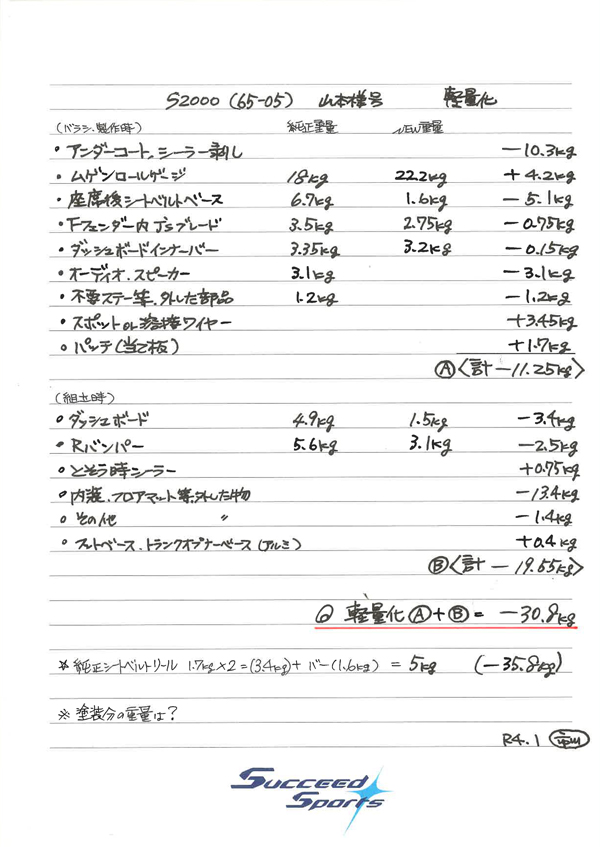 S2000 (65-05) 山本様号 軽量化
(バラシ、製作時) 純正重量 NEW重量
・アンダーコート、シーラー剥し -10.3kg
・ムゲンロールゲージ 18kg 22.2kg +4.2kg
・座席後シートベルトベース 6.7kg 1.6kg -5.1kg
・Fフェンダー内 J'sブレード 3.5kg 2.75kg -0.75kg
・ダッシュボードインナーバー 3.35kg 3.2kg -0.15kg
・オーディオ、スピーカー 3.1kg -3.1kg
・不要ステー等、外した部品 1.2kg -1.2kg
・スポットor溶接ワイヤー +3.45kg
・パッチ(当て板) +1.7kg
Ⓐ〈計 -11.25kg〉
(組立時)
・ダッシュボード 4.9kg 1.5kg -3.4kg
・Rバンパー 5.6kg 3.1kg -2.5kg
・とそう時シーラー +0.75kg
・内装、フロアマット等、外した物 -13.4kg
・その他 〃 -1.4kg
・フットベース、トランクオープナーベース(アルミ) +0.4kg
Ⓑ〈計 -19.55kg〉
◎ 軽量化 Ⓐ+Ⓑ= -30.8kg
☆純正シートベルトリール 1.7kg×2=(3.4kg)+バー(1.6kg) = 5kg (-35.8kg)
※塗装分の重量は?
R4.1
Succeed
Sports